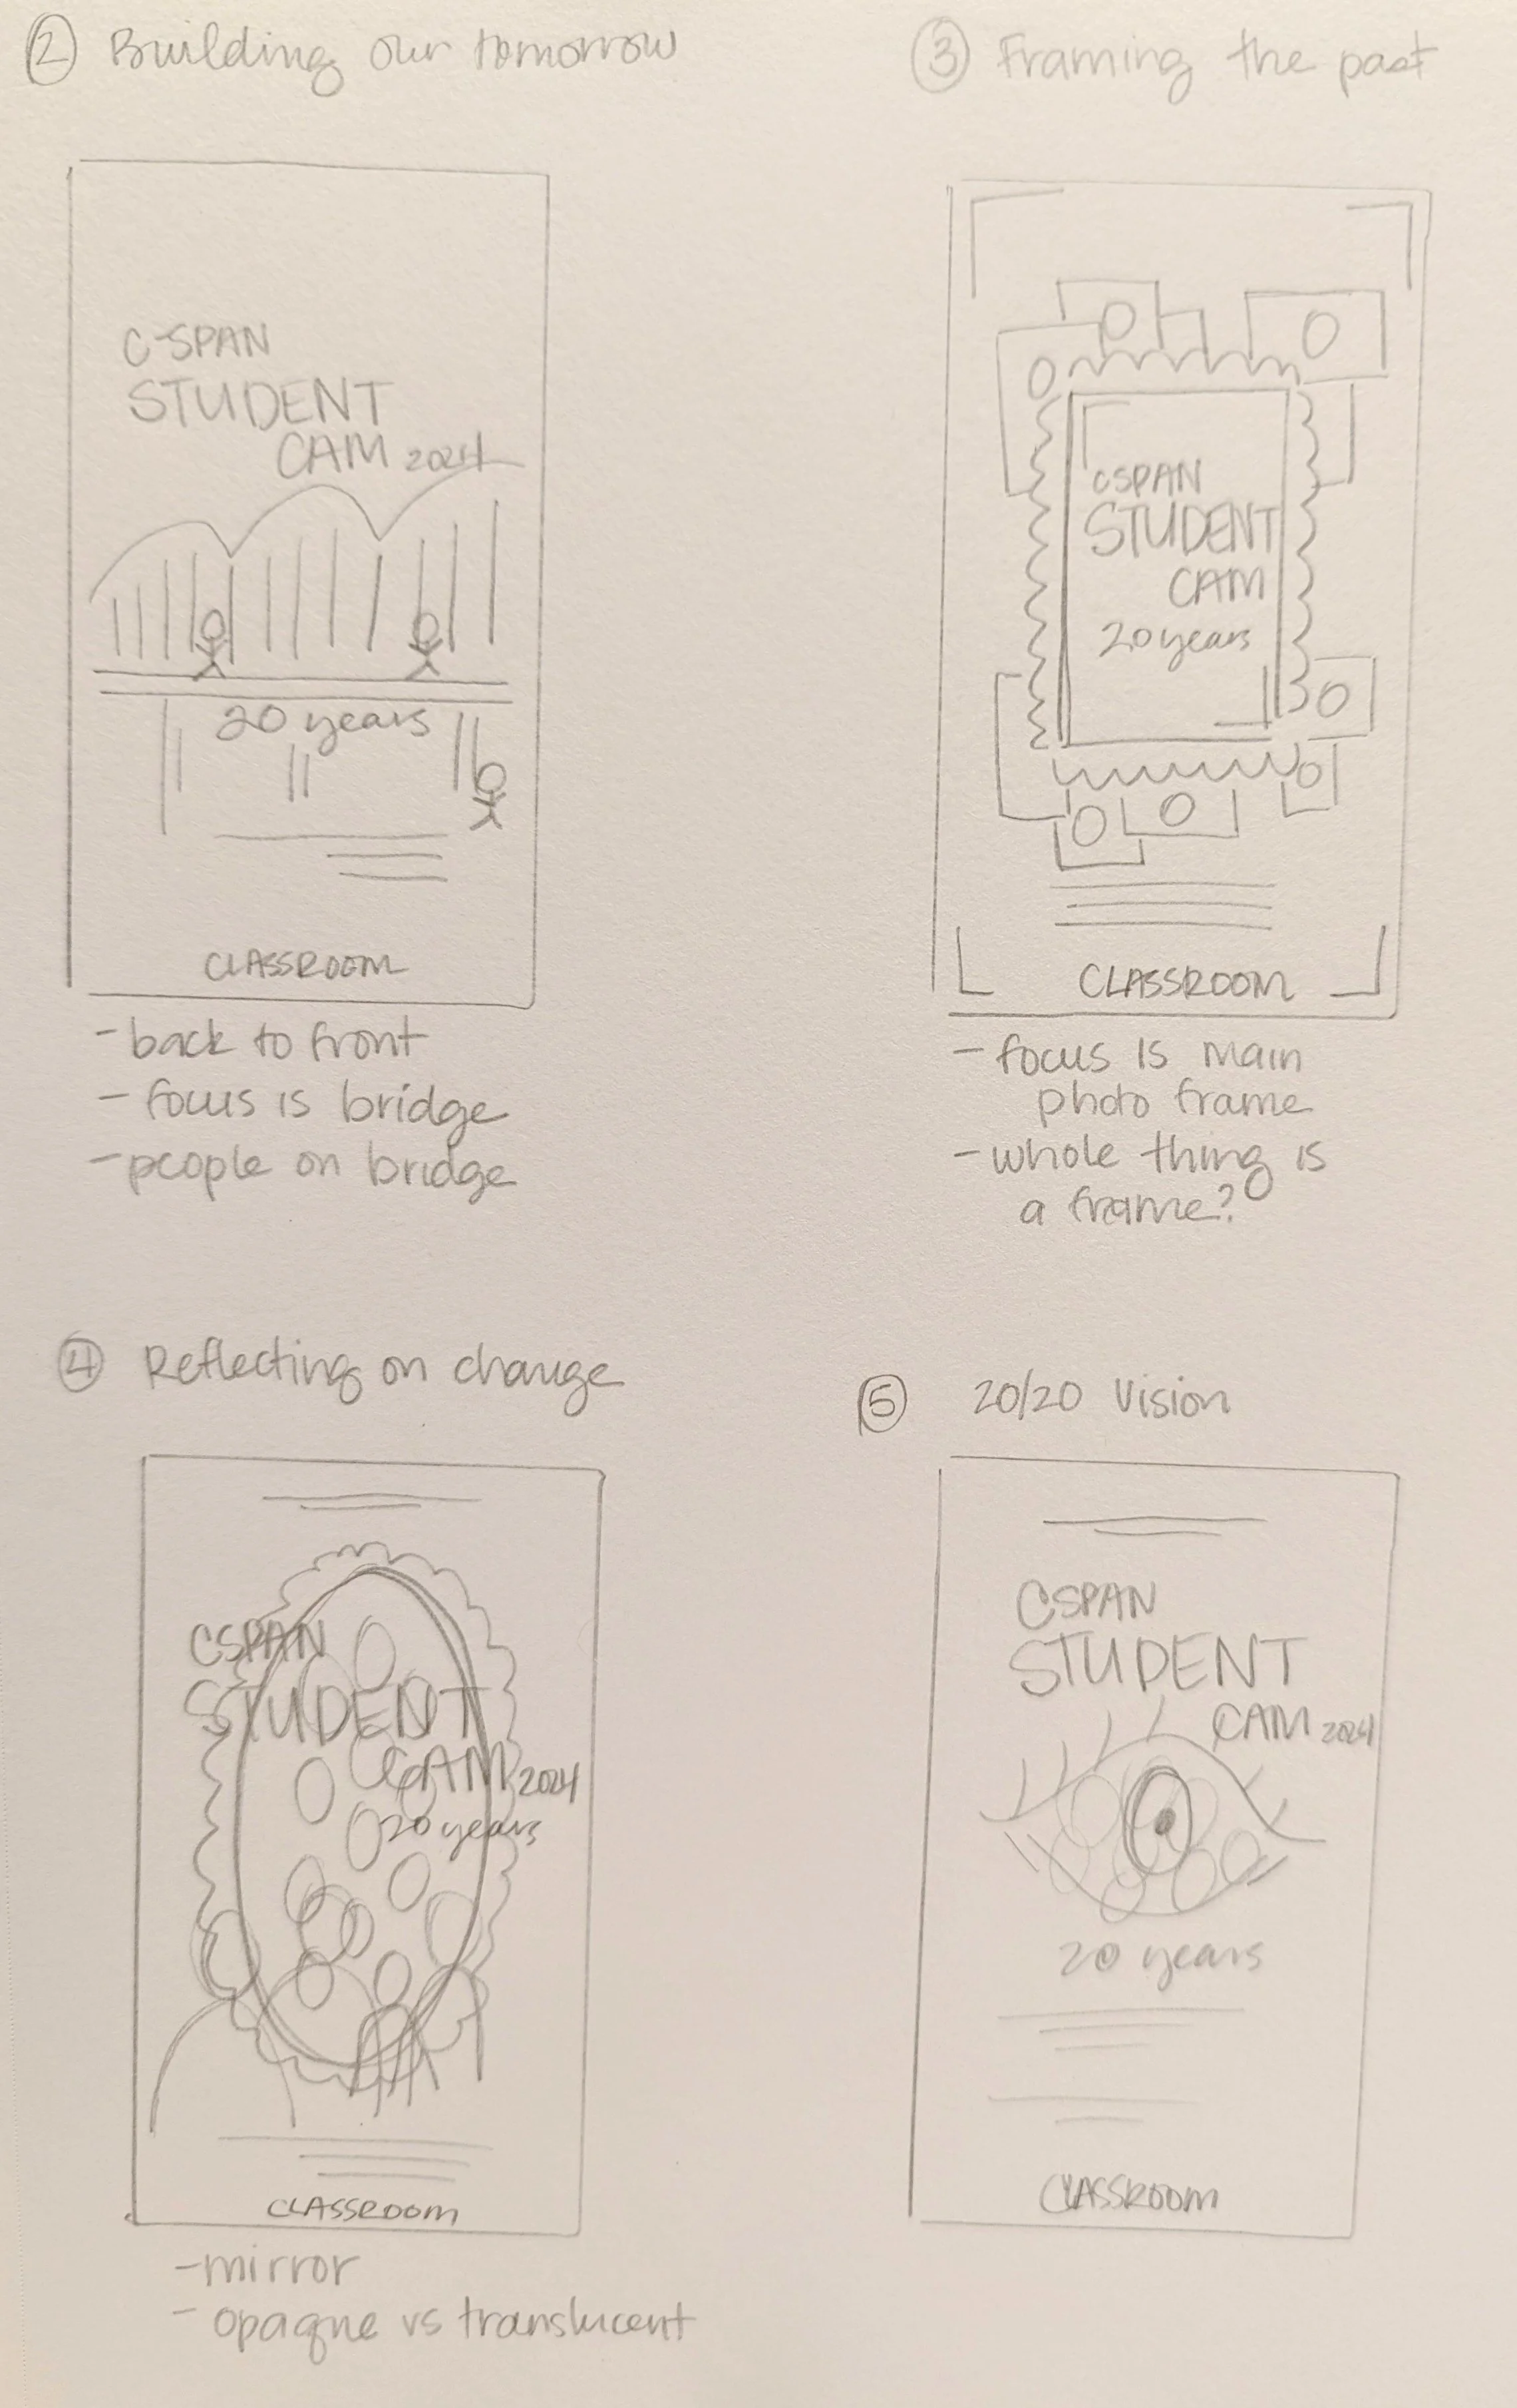 ② Building our tomorrow
C-SPAN
STUDENT
CAM 2024
20 years
CLASSROOM
- back to front
- focus is bridge
- people on bridge
③ Framing the past
CSPAN
STUDENT
CAM
20 years
CLASSROOM
- focus is main
photo frame
- whole thing is
a frame?
④ Reflecting on change
CSPAN
STUDENT
CAM 2024
20 years
CLASSROOM
- mirror
- opaque vs translucent
⑤ 20/20 Vision
CSPAN
STUDENT
CAM 2024
20 years
CLASSROOM